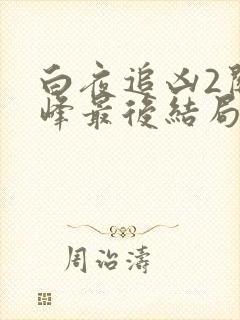 白夜追凶2關
峰最後結局
周治濤